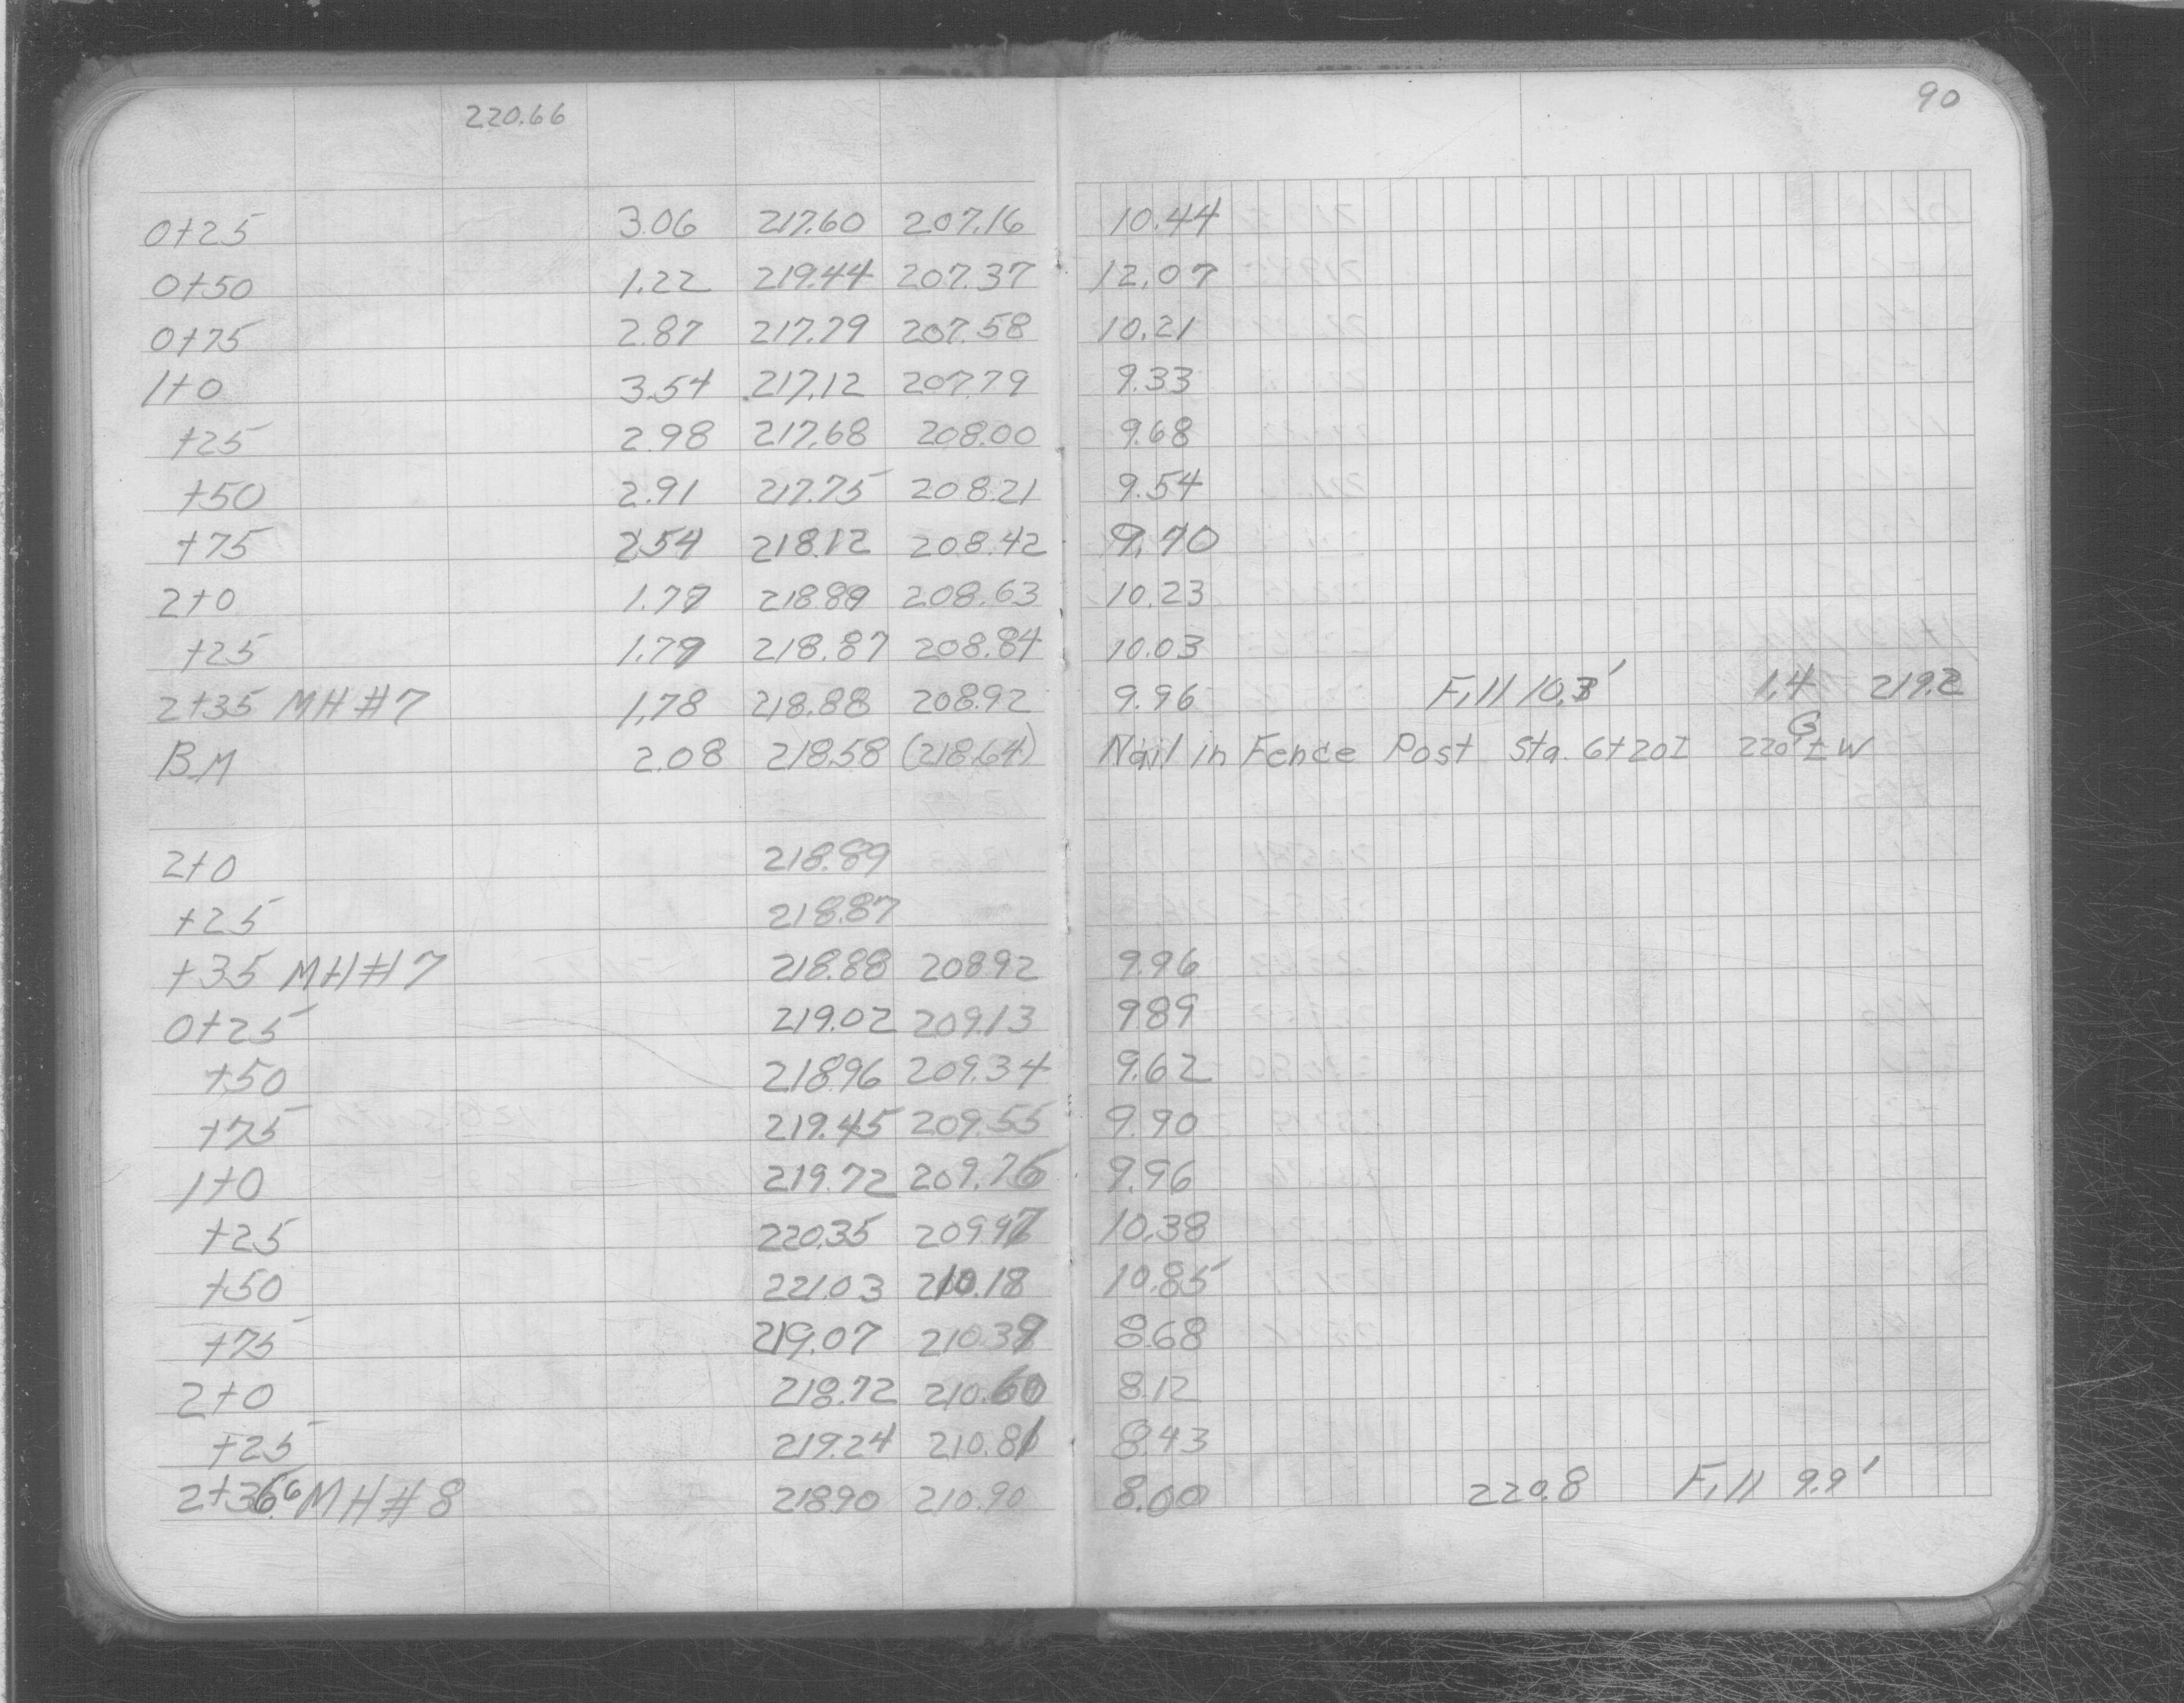 220.66 90
0+25 3.06 217.60 207.16 10.44
0+50 1.22 219.44 207.37 12.07
0+75 2.87 217.79 207.58 10.21
1+0 3.54 217.12 207.79 9.33
+25 2.98 217.68 208.00 9.68
+50 2.91 217.75 208.21 9.54
+75 2.54 218.12 208.42 9.70
2+0 1.77 218.89 208.63 10.23
+25 1.79 218.87 208.84 10.03
2+35 MH#7 1.78 218.88 208.92 9.96 Fill 10.3' 1.4 219.2
BM 2.08 218.58 (218.64) Nail in Fence Post Sta. 6+20± 220'± W
2+0 218.89
+25 218.87
+35 MH#7 218.88 208.92 9.96
0+25 219.02 209.13 9.89
+50 218.96 209.34 9.62
+75 219.45 209.55 9.90
1+0 219.72 209.76 9.96
+25 220.35 209.97 10.38
+50 221.03 210.18 10.85
+75 219.07 210.39 8.68
2+0 218.72 210.60 8.12
+25 219.24 210.81 8.43
2+36.6 MH#8 218.90 210.90 8.00 220.8 Fill 9.9'